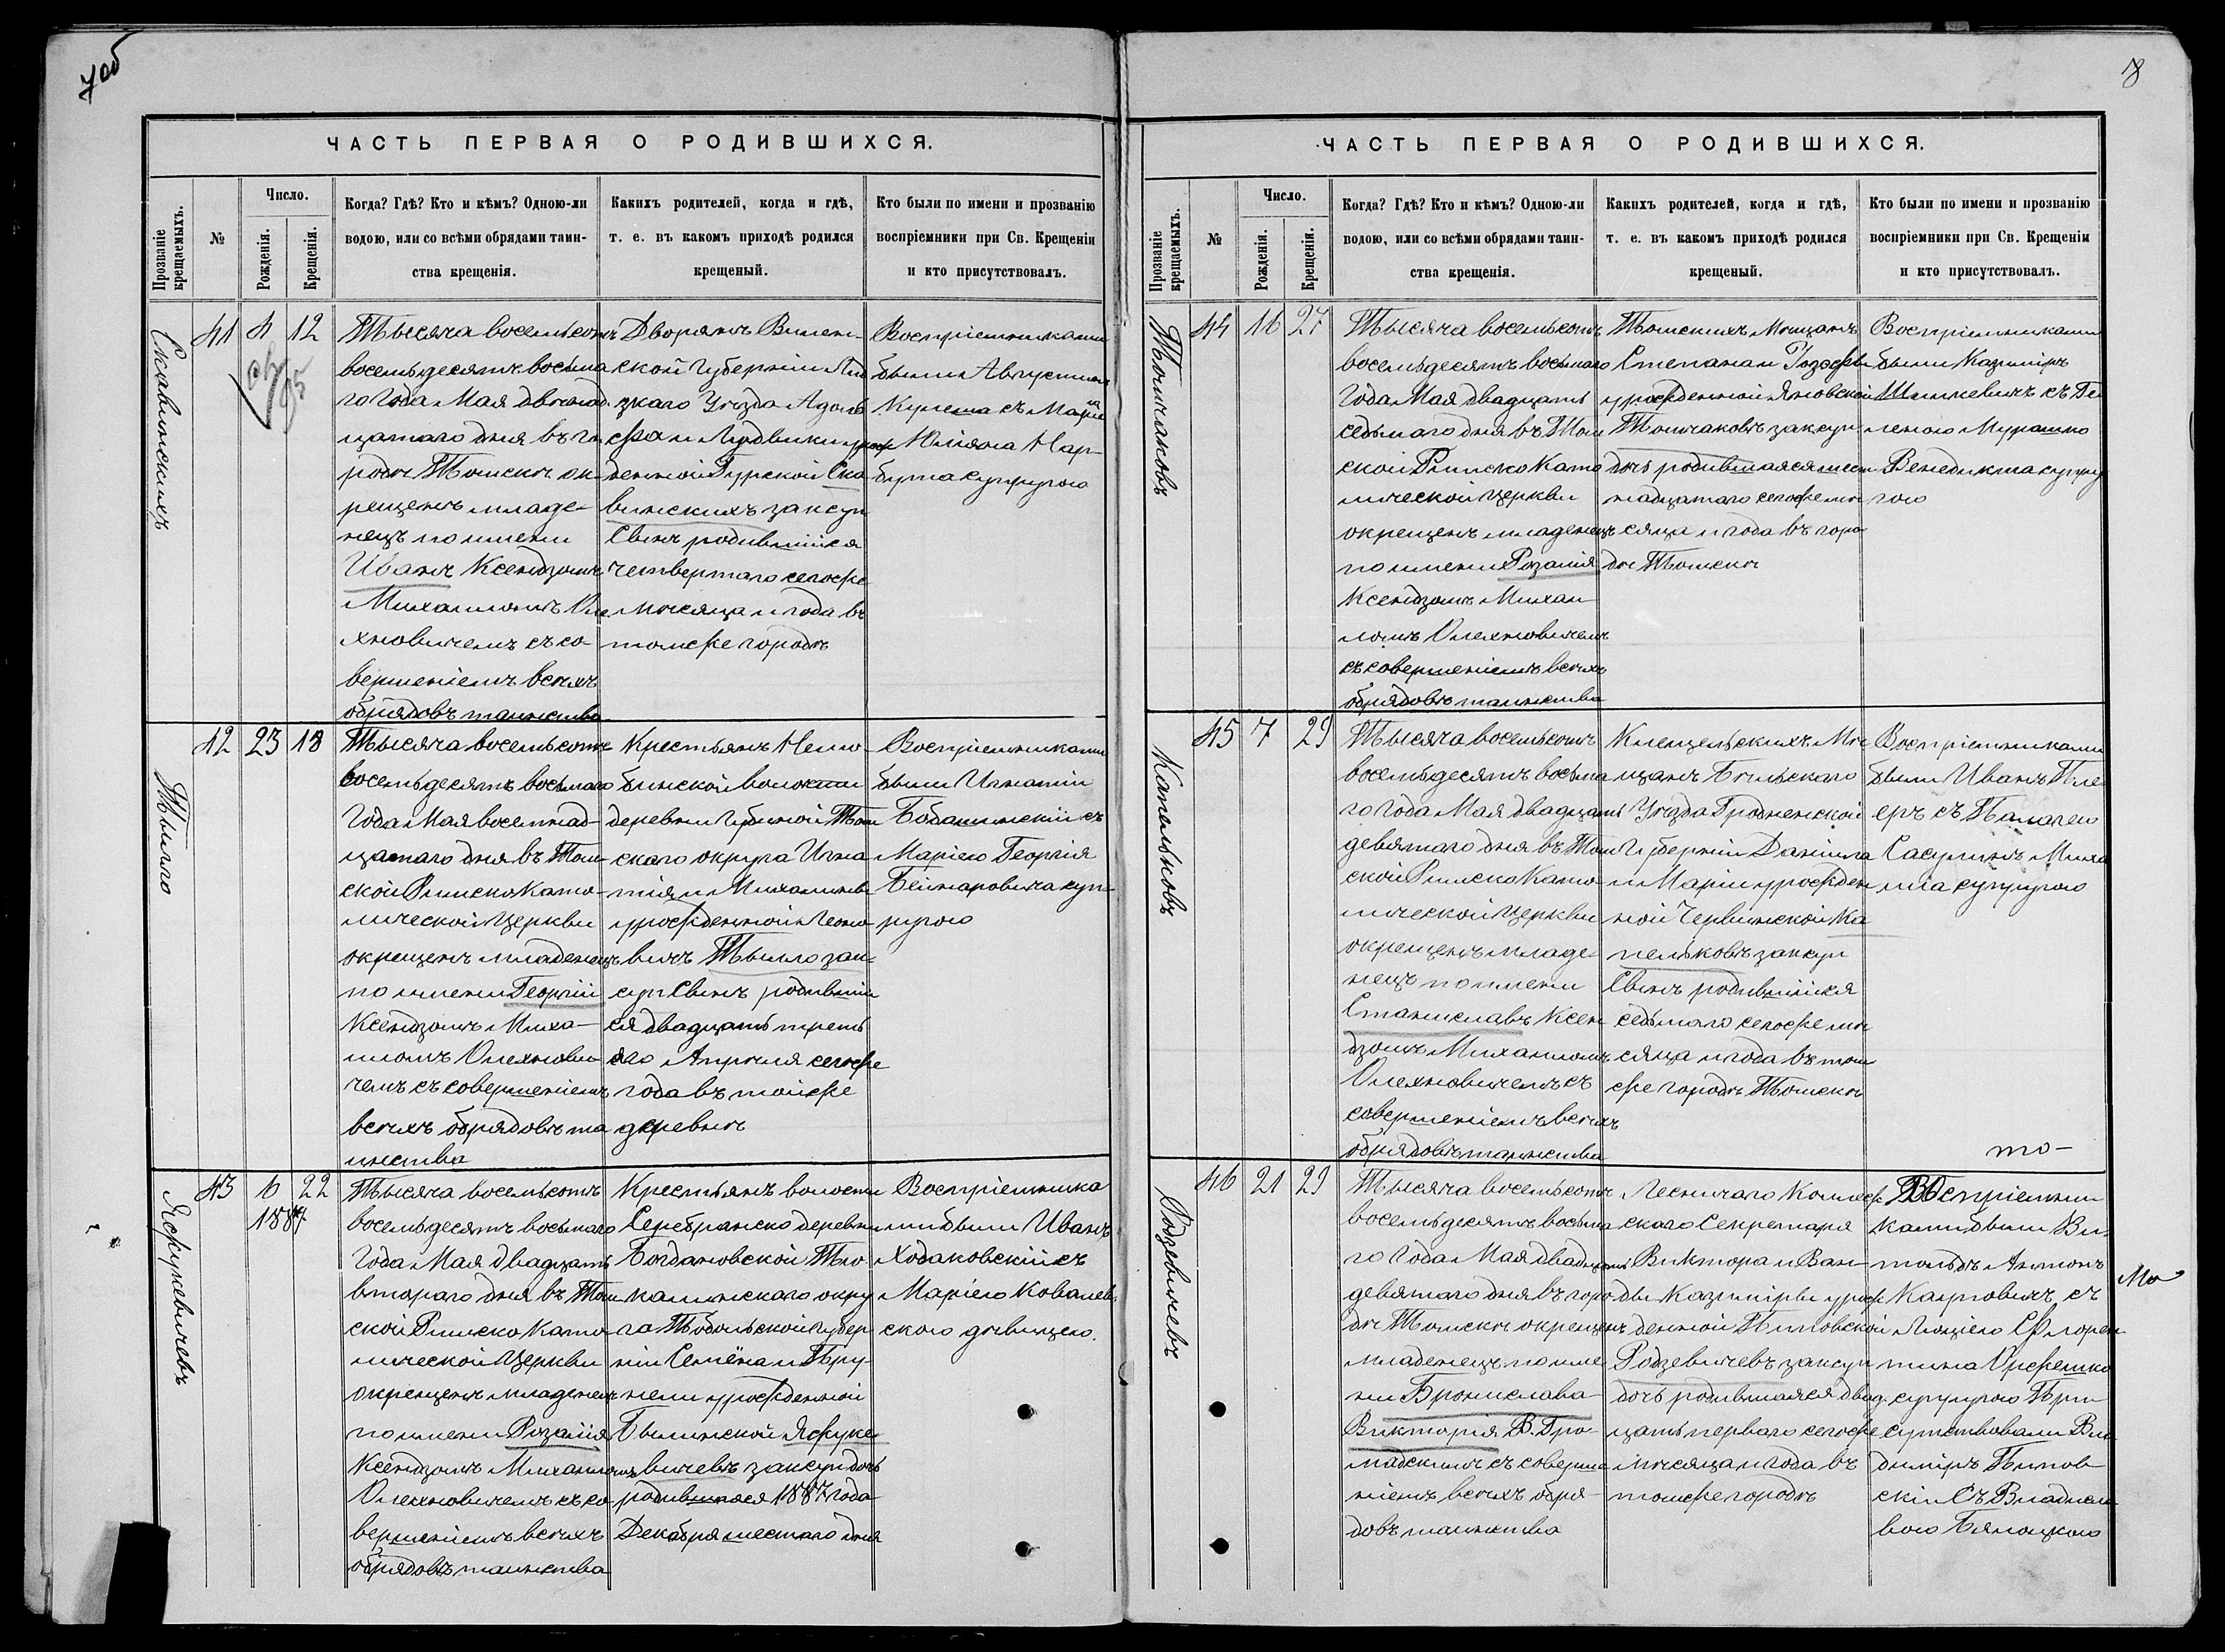 7об
ЧАСТЬ ПЕРВАЯ О РОДИВШИХСЯ.
Прозваніе крещаемыхъ.
№
Число.
Рожденія.
Крещенія.
Когда? Гдѣ? Кто и кѣмъ? Одною-ли
водою, или со всѣми обрядами таин-
ства крещенія.
Какихъ родителей, когда и гдѣ,
т. е. въ какомъ приходѣ родился
крещеный.
Кто были по имени и прозванію
воспріемники при Св. Крещеніи
и кто присутствовалъ.
Скавинскихъ
41 4 12
Тысяча восемьсотъ
восемьдесятъ восьма
го Года Мая двѣнад
цатаго дня въ го
родѣ Томскѣ ок-
рещенъ младе-
нецъ по имени
Иванъ Ксендзомъ
Михаиломъ Оле
хновичемъ съ со-
вершеніемъ всѣхъ
обрядовъ таинства
Дворянъ Вилен-
ской Губерніи Ли
зкаго Уѣзда Адоль
фа и Людвики урож
денной Гурской Ска
винскихъ закон
Сынъ родившійся
четвертаго сегоже
мѣсяца и года въ
томже городѣ
Воспріемниками
были Августинъ
съ Маріею
Юліяна Нар-
бута супругою
Тылло
42 23 18
Тысяча восемьсотъ
восемьдесятъ восьмаго
Года Мая восемнад-
цатаго дня въ Том-
ской Римско Като-
лической Церкви
окрещенъ младенецъ
по имени Георгій
Ксендзомъ Миха-
иломъ Олехнови-
чемъ съ совершеніемъ
всѣхъ обрядовъ та
инства
Крестьянъ Нелю-
бинской волости
деревни Губиной Том
скаго округа Игна
тія и Михалины
урожденной Леоно-
вичъ Тылло зак-
Сынъ родивший
ся двадцать треть
яго Апрѣля сегоже
года въ тойже
деревнѣ
Воспріемниками
были Игнатій
съ
Маріею Георгія
Бейнаровича суп-
ругою
Яржукевичевъ
43 6 22
1887
Тысяча восемьсотъ
восемьдесятъ восьмаго
Года Мая двадцать
втораго дня въ Том
ской Римско Като-
лической Церкви
окрещенъ младенецъ
по имени Розалія
Ксендзомъ Михаиломъ
Олехновичемъ съ со
вершеніемъ всѣхъ
обрядовъ таинства
Крестьянъ волости
Серебрянско деревни
Богдановской Тю-
калинскаго окру
га Тобольской губер
ніи Семёна и Пру-
урожденной
Былинской Яржуке
вичевъ дочь
родившаяся 1887 года
Декабря шестаго дня
Воспріемника
ми были Иванъ
Ходаковскій съ
Маріею Ковалев-
скою дѣвицею.
8
ЧАСТЬ ПЕРВАЯ О РОДИВШИХСЯ.
Прозваніе крещаемыхъ.
№
Число.
Рожденія.
Крещенія.
Когда? Гдѣ? Кто и кѣмъ? Одною-ли
водою, или со всѣми обрядами таин-
ства крещенія.
Какихъ родителей, когда и гдѣ,
т. е. въ какомъ приходѣ родился
крещеный.
Кто были по имени и прозванію
воспріемники при Св. Крещеніи
и кто присутствовалъ.
Толчаковъ
44 16 27
Тысяча восемьсотъ
восемьдесятъ восьмаго
Года Мая двадцать
седьмаго дня въ Том
ской Римско Като
лической Церкви
окрещенъ младенецъ
по имени Розалія
Ксендзомъ Михаи
ломъ Олехновичемъ
съ совершеніемъ всѣхъ
обрядовъ таинства
Томскихъ Мѣщанъ
Степана и Юзефы
урожденной Яновской
Толчаковъ
дочь родившаяся шест
надцатаго сегоже мѣ
сяца и года въ горо
дѣ Томскѣ
Воспріемниками
были Казиміръ
Шинкевичъ съ Ге
леною Мурашко
Венедикта супру
гою
Капельковъ
45 7 29
Тысяча восемьсотъ
восемьдесятъ восьма
го года Мая двадцать
девятаго дня въ Том
ской Римско Като-
лической Церкви
окрещенъ младе-
нецъ по имени
Станиславъ Ксен
дзомъ Михаиломъ
Олехновичемъ съ
совершеніемъ всѣхъ
обрядовъ таинства
Клещельскихъ Мѣ
щанъ Бѣльскаго
Уѣзда Гродненской
Губерніи Даніила
и Маріи урожден
ной Червинской Ка
пельковъ
Сынъ родившійся
седьмаго сегоже мѣ
сяца и года въ том
же городѣ Томскѣ
Воспріемниками
были Иванъ
съ
Миха
ила супругою
то-
Родзевичевъ
46 21 29
Тысяча восемьсотъ
восемьдесятъ восьма
го Года Мая двадцать
девятаго дня въ горо
дѣ Томскѣ окрещенъ
младенецъ по име
ни Бронислава
Виктория В. Гро-
мадскимъ съ соверше
ніемъ всѣхъ обря-
довъ таинства
Лесничаго Коллеж
скаго Секретаря
Виктора и Ван-
ды Казиміры урож
денной Пиловской
Родзевичевъ
дочь родившаяся двад-
цать перваго сегоже
мѣсяца и года въ
томже городѣ
Воспріемни
ками были Ви-
тольдъ Антонъ
Карповичъ съ
Люціею Флорен
тина Оржешко
супругою При
сутствовали Вла
димиръ Пилов
скій Съ Владисла
вою Бялоцкою